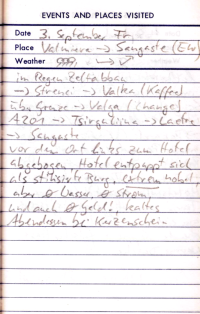 EVENTS AND PLACES VISITED
Date 3. September Fr.
Place Valmiera -> Sangaste (Est)
Weather ->
im Regen Zeltabbau
-> Strenci -> Valka (Kaffee)
über Grenze -> Valga (change)
A201 -> Tsirguliina -> Laatre
-> Sangaste
vor dem Ort links zum Hotel
abgebogen. Hotel entpuppt sich
als stilisierte Burg, extrem nobel,
aber Ø Wasser, Ø Strom,
und auch Ø Geld!, kaltes
Abendessen bei Kerzenschein